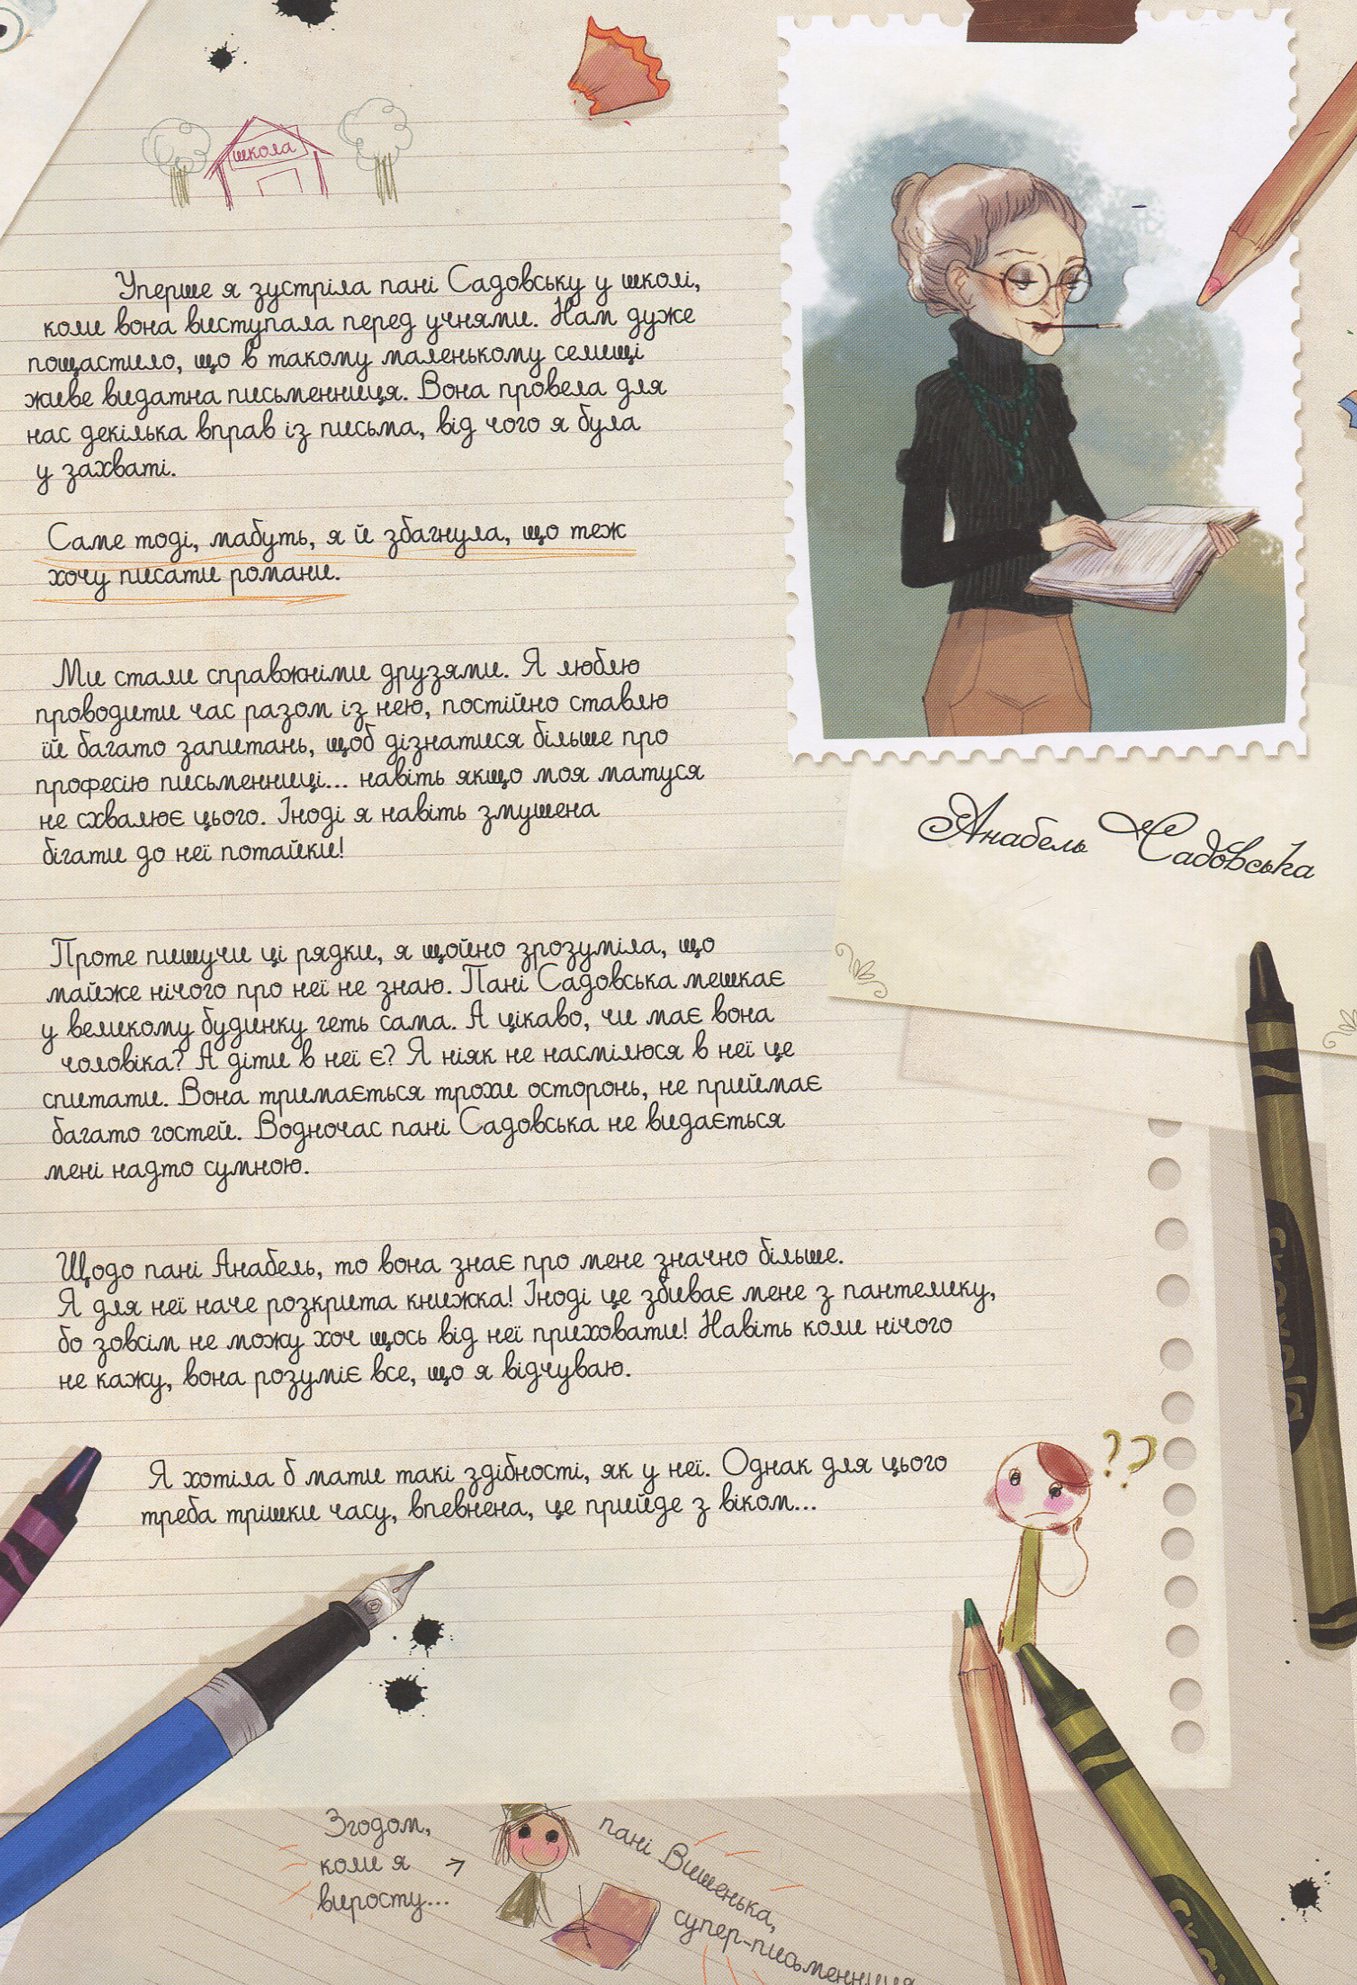 школа
Уперше я зустріла пані Садовську у школі,
коли вона виступала перед учнями. Нам дуже
пощастило, що в такому маленькому селищі
живе видатна письменниця. Вона провела для
нас декілька вправ із письма, від чого я була
у захваті.
Саме тоді, мабуть, я й збагнула, що теж
хочу писати романи.
Ми стали справжніми друзями. Я люблю
проводити час разом із нею, постійно ставлю
їй багато запитань, щоб дізнатися більше про
професію письменниці... навіть якщо моя матуся
не схвалює цього. Іноді я навіть змушена
бігати до неї потайки!
Анабель Садовська
Проте пишучи ці рядки, я щойно зрозуміла, що
майже нічого про неї не знаю. Пані Садовська мешкає
у великому будинку геть сама. А цікаво, чи має вона
чоловіка? А діти в неї є? Я ніяк не насмілюся в неї це
спитати. Вона тримається трохи осторонь, не приймає
багато гостей. Водночас пані Садовська не видається
мені надто сумною.
Щодо пані Анабель, то вона знає про мене значно більше.
Я для неї наче розкрита книжка! Іноді це збиває мене з пантелику,
бо зовсім не можу хоч щось від неї приховати! Навіть коли нічого
не кажу, вона розуміє все, що я відчуваю.
Я хотіла б мати такі здібності, як у неї. Однак для цього
треба трішки часу, впевнена, це прийде з віком...
??
Згодом,
коли я
виросту...
пані Вишенька,
супер-письменниця